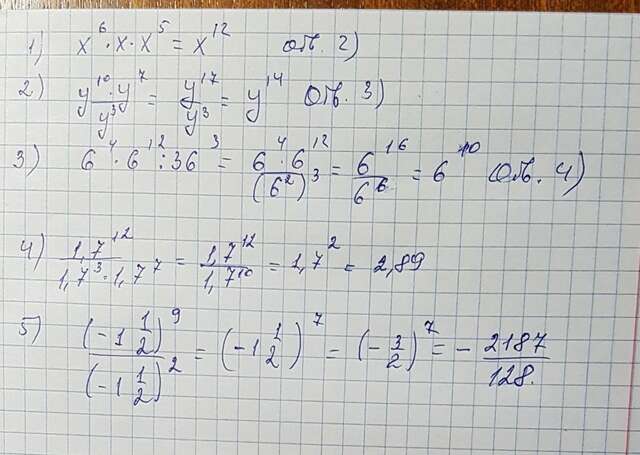 1) x⁶ · x · x⁵ = x¹² отв. 2)
2) (y¹⁰ · y⁷)/y³ = y¹⁷/y³ = y¹⁴ отв. 3)
3) 6⁴ · 6¹² : 36³ = (6⁴ · 6¹²)/(6²)³ = 6¹⁶/6⁶ = 6¹⁰ отв. 4)
4) 1,7¹²/(1,7³ · 1,7⁷) = 1,7¹²/1,7¹⁰ = 1,7² = 2,89
5) (-1 1/2)⁹/(-1 1/2)² = (-1 1/2)⁷ = (-3/2)⁷ = - 2187/128.